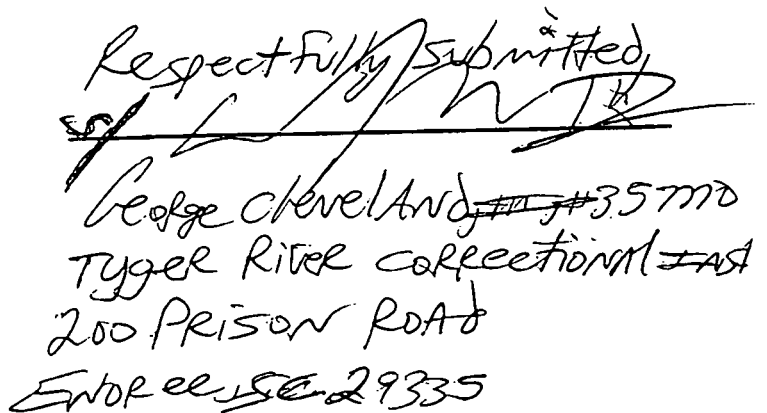 Respectfully submitted,
s/
George Cleveland, III, #35770
Tyger River Correctional Inst
200 Prison Road
Enoree, SC 29335